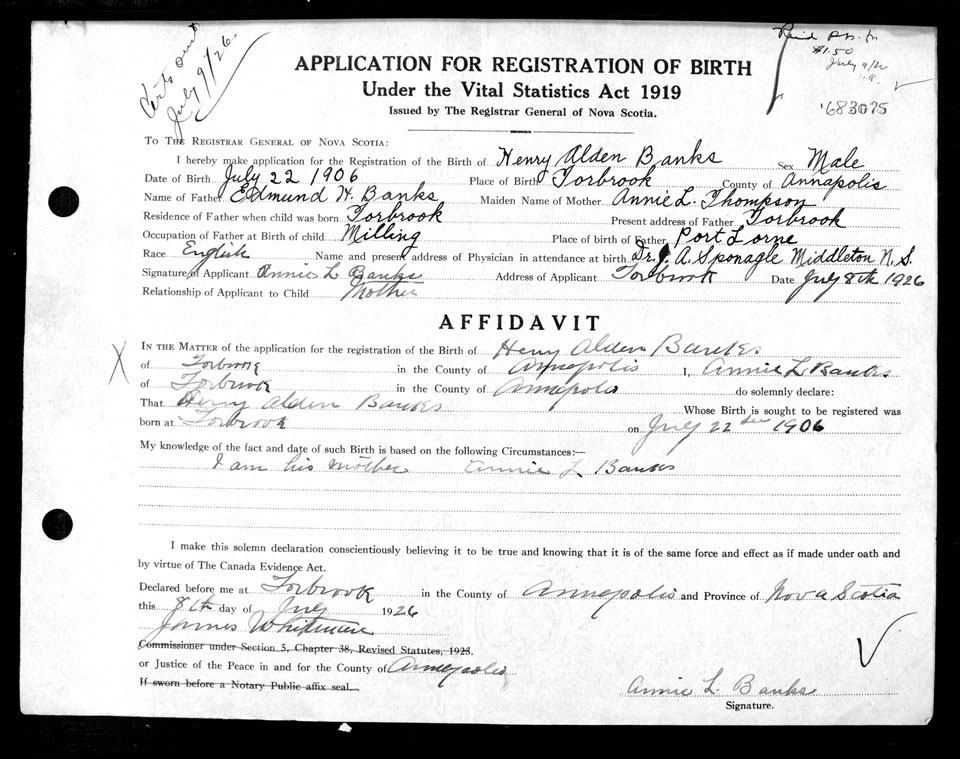 Certs sent
July 9/26.
Paid
$1.50
July 9/26
683075
APPLICATION FOR REGISTRATION OF BIRTH
Under the Vital Statistics Act 1919
Issued by The Registrar General of Nova Scotia.
TO THE REGISTRAR GENERAL OF NOVA SCOTIA:
I hereby make application for the Registration of the Birth of Henry Alden Banks Sex Male
Date of Birth July 22 1906 Place of Birth Torbrook County of Annapolis
Name of Father Edmund H. Banks Maiden Name of Mother Annie L. Thompson
Residence of Father when child was born Torbrook Present address of Father Torbrook
Occupation of Father at Birth of child Milling Place of birth of Father Port Lorne
Race English Name and present address of Physician in attendance at birth Dr. J. A. Sponagle Middleton N.S.
Signature of Applicant Annie L Banks Address of Applicant Torbrook Date July 8th 1926
Relationship of Applicant to Child Mother
AFFIDAVIT
X
IN THE MATTER of the application for the registration of the Birth of Henry Alden Banks
of Torbrook in the County of Annapolis I, Annie L Banks
of Torbrook in the County of Annapolis do solemnly declare:
That Henry Alden Banks Whose Birth is sought to be registered was
born at Torbrook on July 22 1906
My knowledge of the fact and date of such Birth is based on the following Circumstances:—
I am his mother Annie L Banks
I make this solemn declaration conscientiously believing it to be true and knowing that it is of the same force and effect as if made under oath and
by virtue of The Canada Evidence Act.
Declared before me at Torbrook in the County of Annapolis and Province of Nova Scotia
this 8th day of July 1926
James Whitman
Commissioner under Section 5, Chapter 38, Revised Statutes, 1923.
or Justice of the Peace in and for the County of Annapolis
If sworn before a Notary Public affix seal.
Annie L. Banks
Signature.